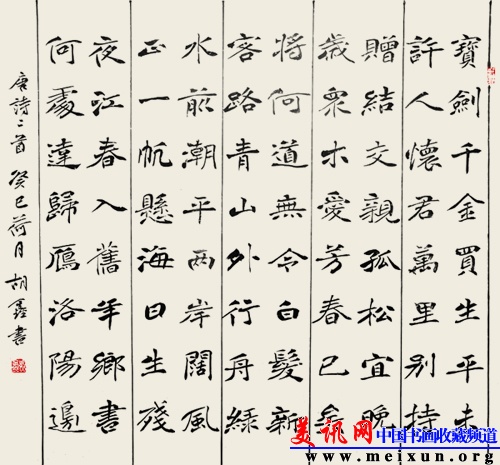 寶劍千金買生平未
許人懷君萬里別持
贈結交親孤松宜晚
歲衆木愛芳春已矣
將何道無令白髮新
客路青山外行舟綠
水前潮平兩岸闊風
正一帆懸海日生殘
夜江春入舊年鄉書
何處達歸鴈洛陽邊
唐詩二首 癸巳荷月 胡鑫書
美讯网 中国书画收藏频道
www.meixun.org